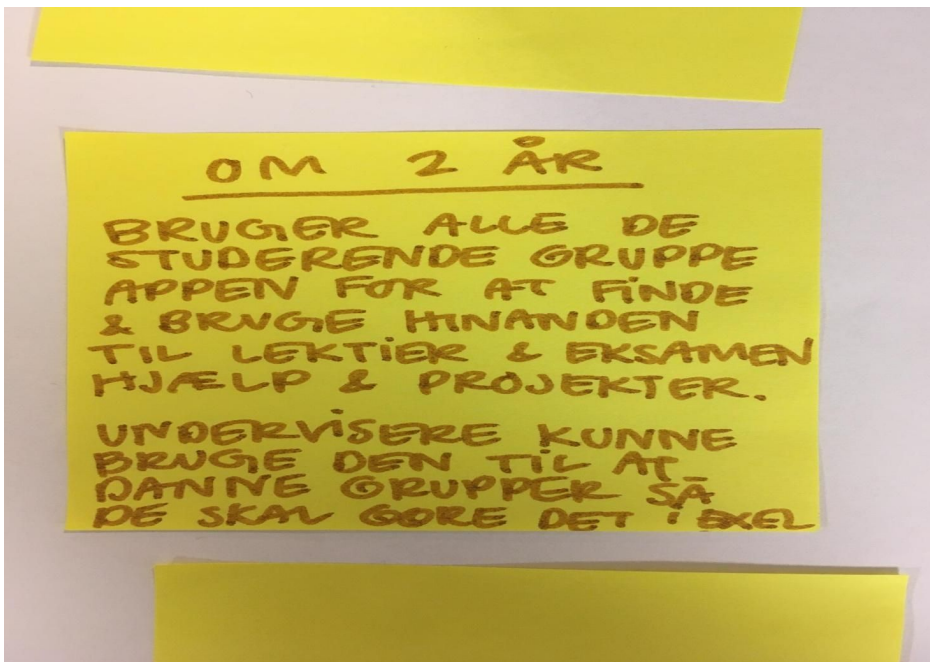 OM 2 ÅR
BRUGER ALLE DE
STUDERENDE GRUPPE
APPEN FOR AT FINDE
& BRUGE HINANDEN
TIL LEKTIER & EKSAMEN
HJÆLP & PROJEKTER.
UNDERVISERE KUNNE
BRUGE DEN TIL AT
DANNE GRUPPER SÅ
DE SKAL GØRE DET I EXEL